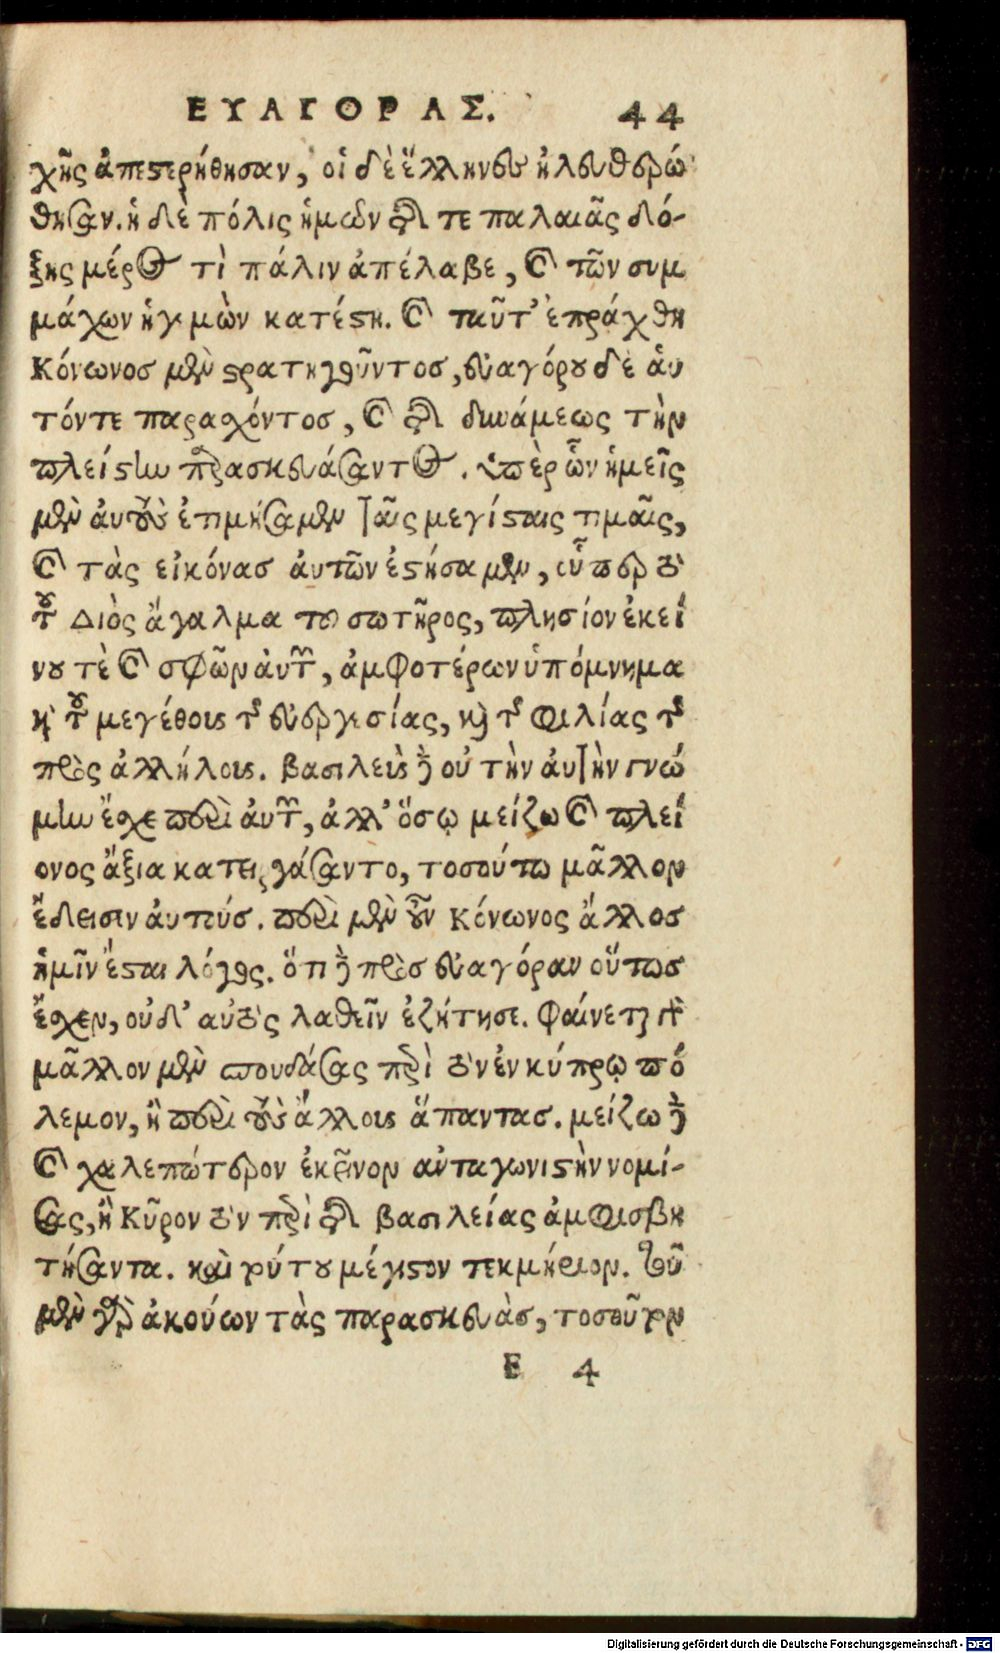 ΕΥΑΓΟΡΑΣ. 44
χῆς ἀπεστερήθησαν, οἱ δὲ ἕλληνες ἠλευθερώ
θησαν. ἡ δὲ πόλις ἡμῶν τῆς τε παλαιᾶς δό-
ξης μέρος τὶ πάλιν ἀπέλαβε, καὶ τῶν συμ
μάχων ἡγεμὼν κατέστη. καὶ ταῦτ' ἐπράχθη
Κόνωνος μὲν στρατηγοῦντος, εὐαγόρου δὲ ἁυ
τόντε παρασχόντος, καὶ τῆς δυνάμεως τὴν
πλείστην παρασκευάσαντος. ὑπὲρ ὧν ἡμεῖς
μὲν ἀυτοὺς ἐτιμήσαμεν ταῖς μεγίσταις τιμαῖς,
καὶ τὰς εἰκόνας ἀυτῶν ἐστήσαμεν, οὗπερ τὸ
τοῦ Διὸς ἄγαλμα τοῦ σωτῆρος, πλησίον ἐκεί
νου τὲ καὶ σφῶν ἀυτῶν, ἀμφοτέρων ὑπόμνημα
καὶ τοῦ μεγέθους τῆς εὐεργεσίας, καὶ τῆς φιλίας τῆς
πρὸς ἀλλήλους. βασιλεὺς δὲ οὐ τὴν ἀυτὴν γνώ
μην ἔσχε περὶ ἀυτῶν, ἀλλ' ὅσῳ μείζω καὶ πλεί
ονος ἄξια κατειργάσαντο, τοσούτω μᾶλλον
ἔδεισεν ἀυτούς. περὶ μὲν οὖν Κόνωνος ἄλλος
ἡμῖν ἔσται λόγος. ὅτι δὲ πρὸς εὐαγόραν οὕτως
ἔσχεν, οὐδ' αὐτὸς λαθεῖν ἐζήτησε. φαίνεται γὰρ
μᾶλλον μὲν σπουδάσας περὶ τὸν ἐν κύπρῳ πό
λεμον, ἢ περὶ τοὺς ἄλλους ἅπαντας. μείζω δὲ
καὶ χαλεπώτερον ἐκεῖνον ἀνταγωνιστὴν νομί-
σας, ἢ Κῦρον τὸν περὶ τῆς βασιλείας ἀμφισβη
τήσαντα. καὶ τούτου μέγιστον τεκμήριον. τοῦ
μὲν γὰρ ἀκούων τὰς παρασκευὰς, τοσοῦτον
E 4
Digitalisierung gefördert durch die Deutsche Forschungsgemeinschaft - DFG